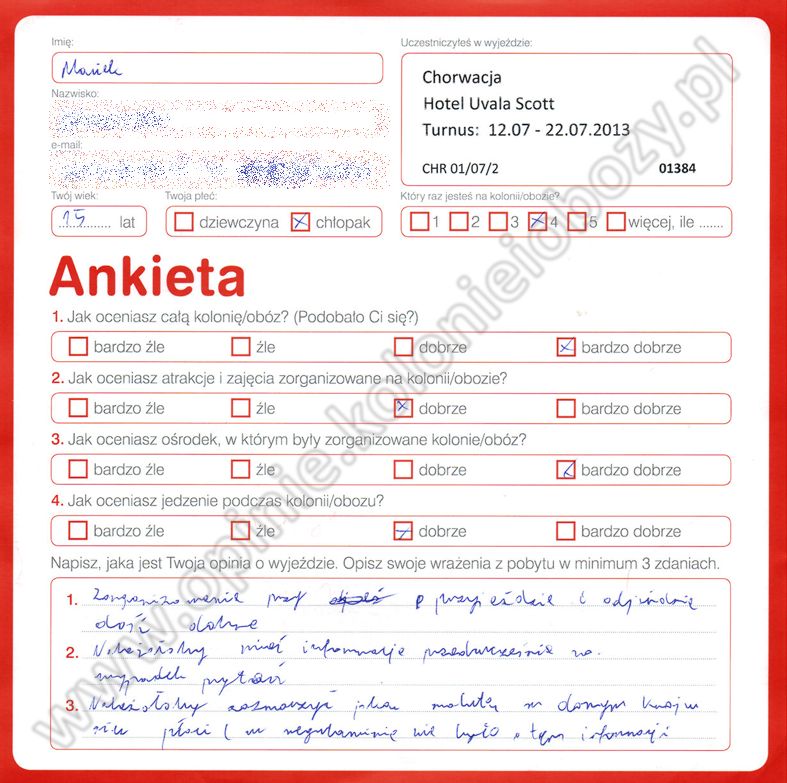 Imię:
Uczestniczyłeś w wyjeździe:
Chorwacja
Nazwisko:
Hotel Uvala Scott
Turnus: 12.07 - 22.07.2013
e-mail:
CHR 01/07/2 01384
Twój wiek: Twoja płeć: Który raz jesteś na kolonii/obozie?
15 lat dziewczyna chłopak 1 2 3 4 5 więcej, ile .......
Ankieta
1. Jak oceniasz całą kolonię/obóz? (Podobało Ci się?)
bardzo źle źle dobrze bardzo dobrze
2. Jak oceniasz atrakcje i zajęcia zorganizowane na kolonii/obozie?
bardzo źle źle dobrze bardzo dobrze
3. Jak oceniasz ośrodek, w którym były zorganizowane kolonie/obóz?
bardzo źle źle dobrze bardzo dobrze
4. Jak oceniasz jedzenie podczas kolonii/obozu?
bardzo źle źle dobrze bardzo dobrze
Napisz, jaka jest Twoja opinia o wyjeździe. Opisz swoje wrażenia z pobytu w minimum 3 zdaniach.
1. Zorganizowanie przy przyjeździe i odjeździe
dość dobre
2. Należałoby mieć informacje przedwcześnie na
wypadek pytań
3. Należałoby zaznaczyć jaką walutą w danym kraju
się płaci ( w regulaminie nie było o tym informacji
www.opinie.kolonieiobozy.pl